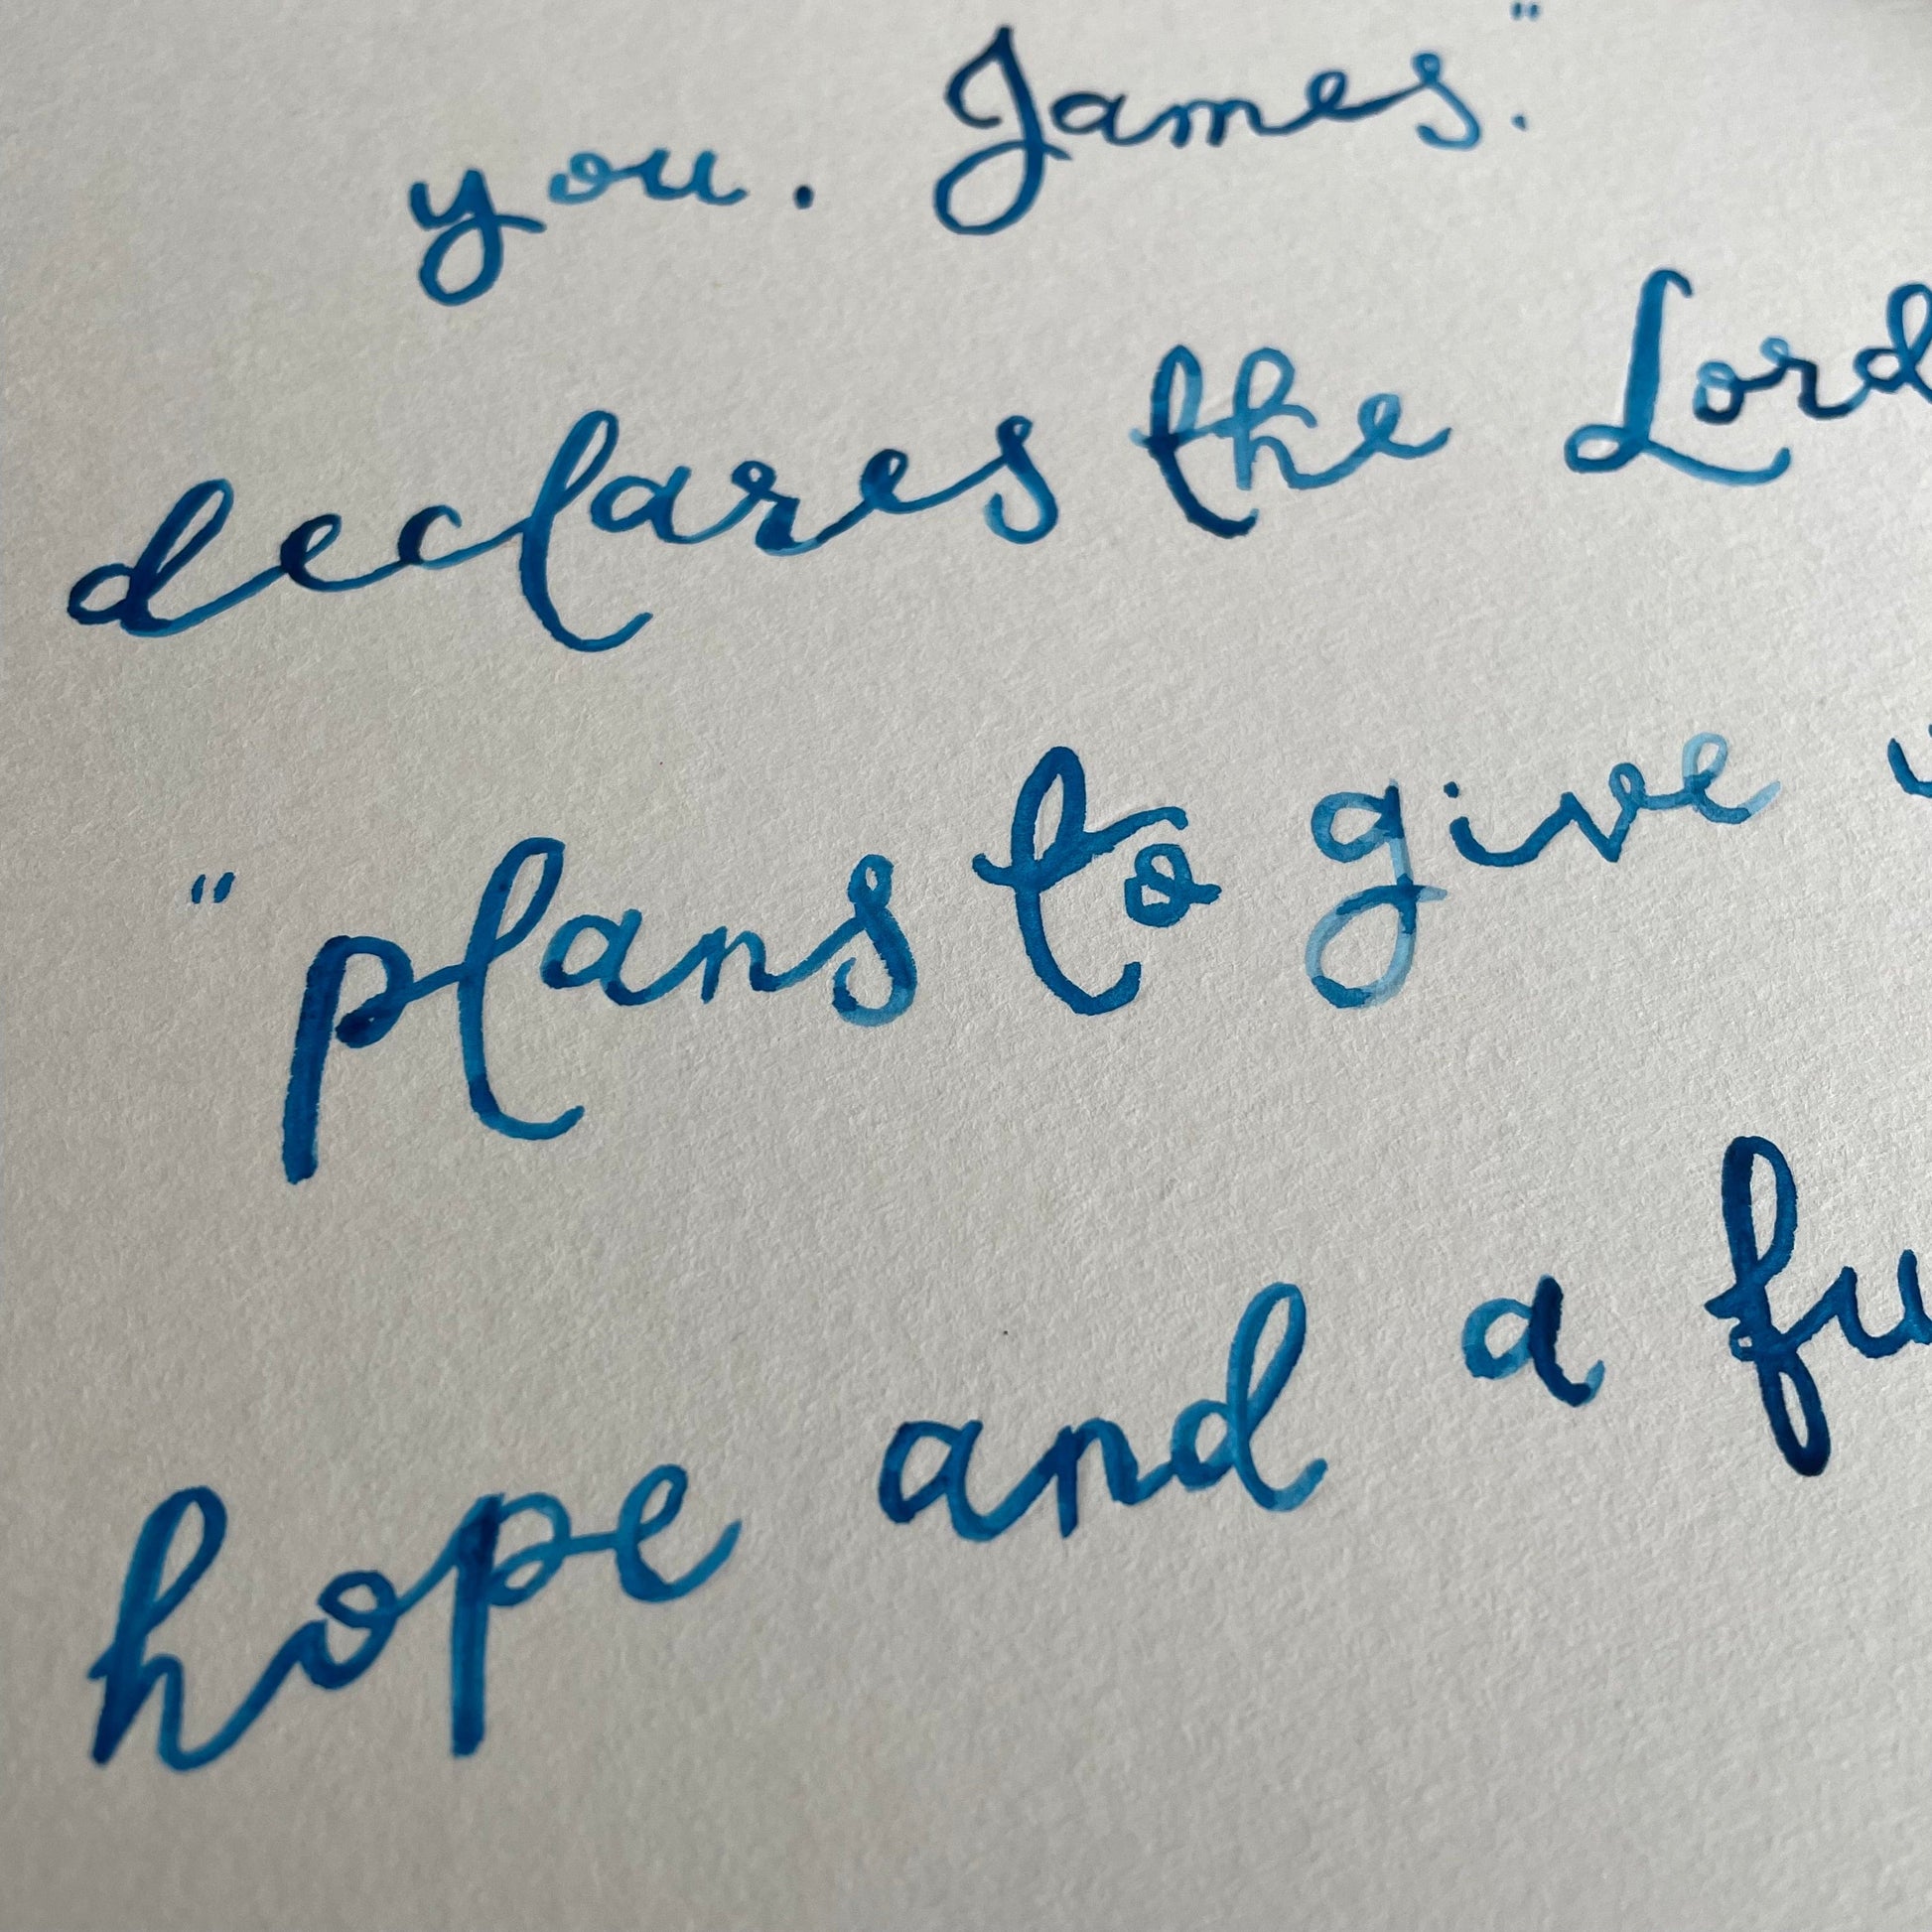 you. James."
declares the Lord
"plans to give
hope and a fu